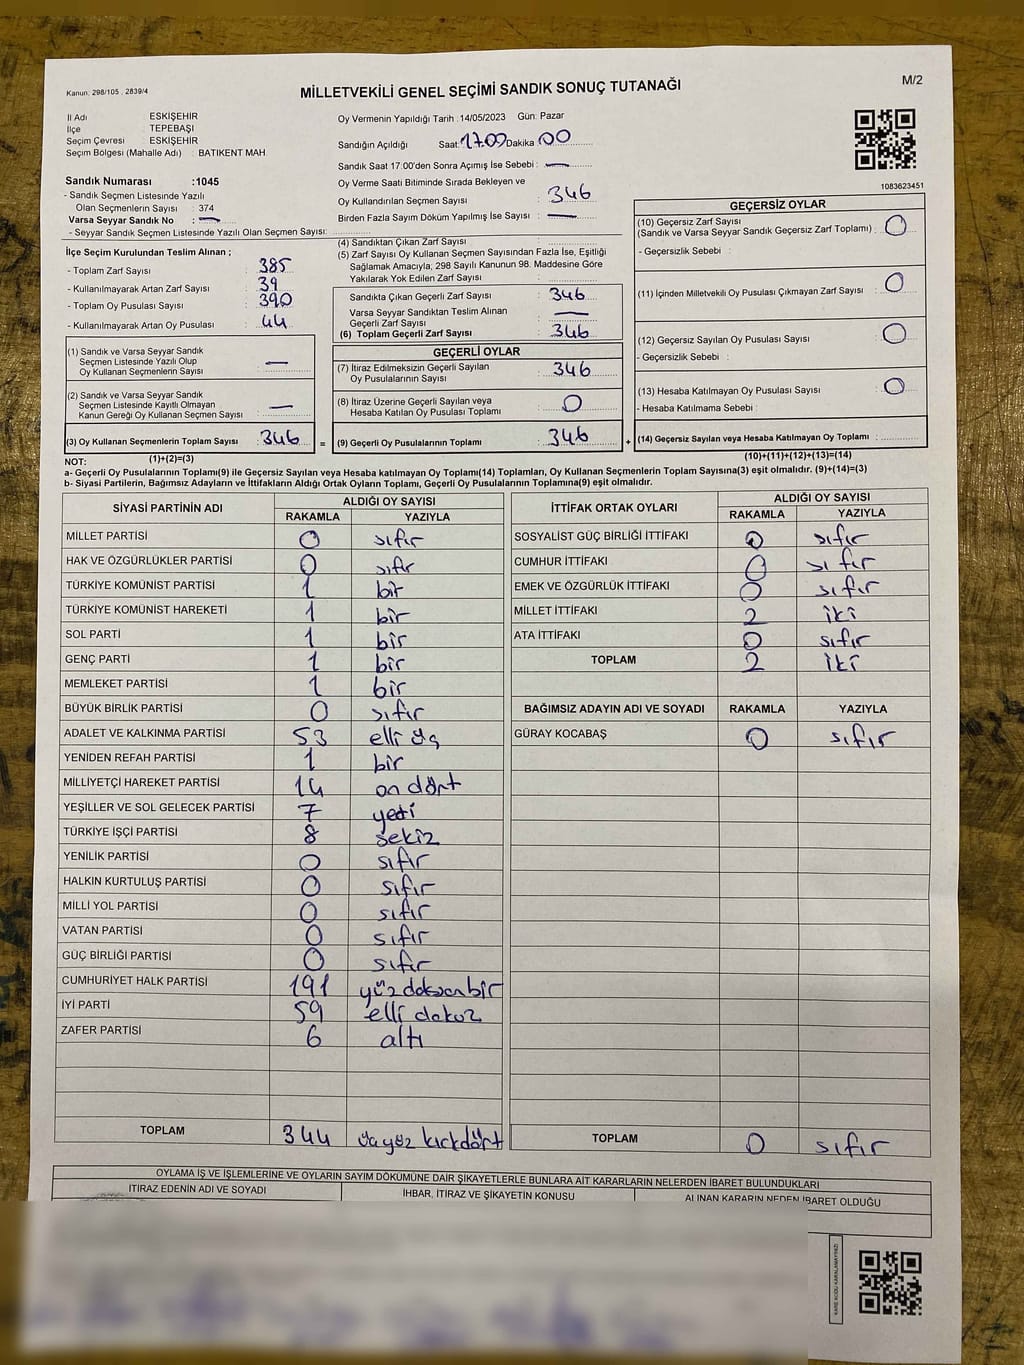 Kanun: 298/105 . 2839/4
MİLLETVEKİLİ GENEL SEÇİMİ SANDIK SONUÇ TUTANAĞI
M/2
İl Adı ESKİŞEHİR
İlçe TEPEBAŞI
Seçim Çevresi ESKİŞEHİR
Seçim Bölgesi (Mahalle Adı) : BATIKENT MAH.
Sandık Numarası :1045
- Sandık Seçmen Listesinde Yazılı
Olan Seçmenlerin Sayısı : 374
Varsa Seyyar Sandık No : —
- Seyyar Sandık Seçmen Listesinde Yazılı Olan Seçmen Sayısı:
Oy Vermenin Yapıldığı Tarih :14/05/2023 Gün: Pazar
Sandığın Açıldığı Saat: 17.00 Dakika 00
Sandık Saat 17:00'den Sonra Açımış İse Sebebi : —
Oy Verme Saati Bitiminde Sırada Bekleyen ve
Oy Kullandırılan Seçmen Sayısı : 346
Birden Fazla Sayım Döküm Yapılmış İse Sayısı : —
1083623451
İlçe Seçim Kurulundan Teslim Alınan ;
- Toplam Zarf Sayısı : 385
- Kullanılmayarak Artan Zarf Sayısı : 39
- Toplam Oy Pusulası Sayısı : 390
- Kullanılmayarak Artan Oy Pusulası : 44
(1) Sandık ve Varsa Seyyar Sandık
Seçmen Listesinde Yazılı Olup
Oy Kullanan Seçmenlerin Sayısı : —
(2) Sandık ve Varsa Seyyar Sandık
Seçmen Listesinde Kayıtlı Olmayan
Kanun Gereği Oy Kullanan Seçmen Sayısı : —
(3) Oy Kullanan Seçmenlerin Toplam Sayısı : 346
(1)+(2)=(3)
(4) Sandıktan Çıkan Zarf Sayısı :
(5) Zarf Sayısı Oy Kullanan Seçmen Sayısından Fazla İse, Eşitliği
Sağlamak Amacıyla; 298 Sayılı Kanunun 98. Maddesine Göre
Yakılarak Yok Edilen Zarf Sayısı :
Sandıkta Çıkan Geçerli Zarf Sayısı : 346
Varsa Seyyar Sandıktan Teslim Alınan
Geçerli Zarf Sayısı : —
(6) Toplam Geçerli Zarf Sayısı : 346
GEÇERLİ OYLAR
(7) İtiraz Edilmeksizin Geçerli Sayılan
Oy Pusulalarının Sayısı : 346
(8) İtiraz Üzerine Geçerli Sayılan veya
Hesaba Katılan Oy Pusulası Toplamı : 0
= (9) Geçerli Oy Pusulalarının Toplamı : 346
GEÇERSİZ OYLAR
(10) Geçersiz Zarf Sayısı
(Sandık ve Varsa Seyyar Sandık Geçersiz Zarf Toplamı) : 0
- Geçersizlik Sebebi :
(11) İçinden Milletvekili Oy Pusulası Çıkmayan Zarf Sayısı : 0
(12) Geçersiz Sayılan Oy Pusulası Sayısı : 0
- Geçersizlik Sebebi :
(13) Hesaba Katılmayan Oy Pusulası Sayısı : 0
- Hesaba Katılmama Sebebi :
+ (14) Geçersiz Sayılan veya Hesaba Katılmayan Oy Toplamı :
(10)+(11)+(12)+(13)=(14)
NOT:
a- Geçerli Oy Pusulalarının Toplamı(9) ile Geçersiz Sayılan veya Hesaba katılmayan Oy Toplamı(14) Toplamları, Oy Kullanan Seçmenlerin Toplam Sayısına(3) eşit olmalıdır. (9)+(14)=(3)
b- Siyasi Partilerin, Bağımsız Adayların ve İttifakların Aldığı Ortak Oyların Toplamı, Geçerli Oy Pusulalarının Toplamına(9) eşit olmalıdır.
SİYASİ PARTİNİN ADI ALDIĞI OY SAYISI
RAKAMLA YAZIYLA
MİLLET PARTİSİ 0 sıfır
HAK VE ÖZGÜRLÜKLER PARTİSİ 0 sıfır
TÜRKİYE KOMÜNİST PARTİSİ 1 bir
TÜRKİYE KOMÜNİST HAREKETİ 1 bir
SOL PARTİ 1 bir
GENÇ PARTİ 1 bir
MEMLEKET PARTİSİ 1 bir
BÜYÜK BİRLİK PARTİSİ 0 sıfır
ADALET VE KALKINMA PARTİSİ 53 elli üç
YENİDEN REFAH PARTİSİ 1 bir
MİLLİYETÇİ HAREKET PARTİSİ 14 on dört
YEŞİLLER VE SOL GELECEK PARTİSİ 7 yedi
TÜRKİYE İŞÇİ PARTİSİ 8 sekiz
YENİLİK PARTİSİ 0 sıfır
HALKIN KURTULUŞ PARTİSİ 0 sıfır
MİLLİ YOL PARTİSİ 0 sıfır
VATAN PARTİSİ 0 sıfır
GÜÇ BİRLİĞİ PARTİSİ 0 sıfır
CUMHURİYET HALK PARTİSİ 191 yüzdoksanbir
İYİ PARTİ 59 elli dokuz
ZAFER PARTİSİ 6 altı
TOPLAM 344 üçyüz kırkdört
İTTİFAK ORTAK OYLARI ALDIĞI OY SAYISI
RAKAMLA YAZIYLA
SOSYALİST GÜÇ BİRLİĞİ İTTİFAKI 0 sıfır
CUMHUR İTTİFAKI 0 sıfır
EMEK VE ÖZGÜRLÜK İTTİFAKI 0 sıfır
MİLLET İTTİFAKI 2 iki
ATA İTTİFAKI 0 sıfır
TOPLAM 2 iki
BAĞIMSIZ ADAYIN ADI VE SOYADI RAKAMLA YAZIYLA
GÜRAY KOCABAŞ 0 sıfır
TOPLAM 0 sıfır
OYLAMA İŞ VE İŞLEMLERİNE VE OYLARIN SAYIM DÖKÜMÜNE DAİR ŞİKAYETLERLE BUNLARA AİT KARARLARIN NELERDEN İBARET BULUNDUKLARI
İTİRAZ EDENİN ADI VE SOYADI İHBAR, İTİRAZ VE ŞİKAYETİN KONUSU ALINAN KARARIN NEDEN İBARET OLDUĞU
KARE KODU KARALAMAYINIZ!